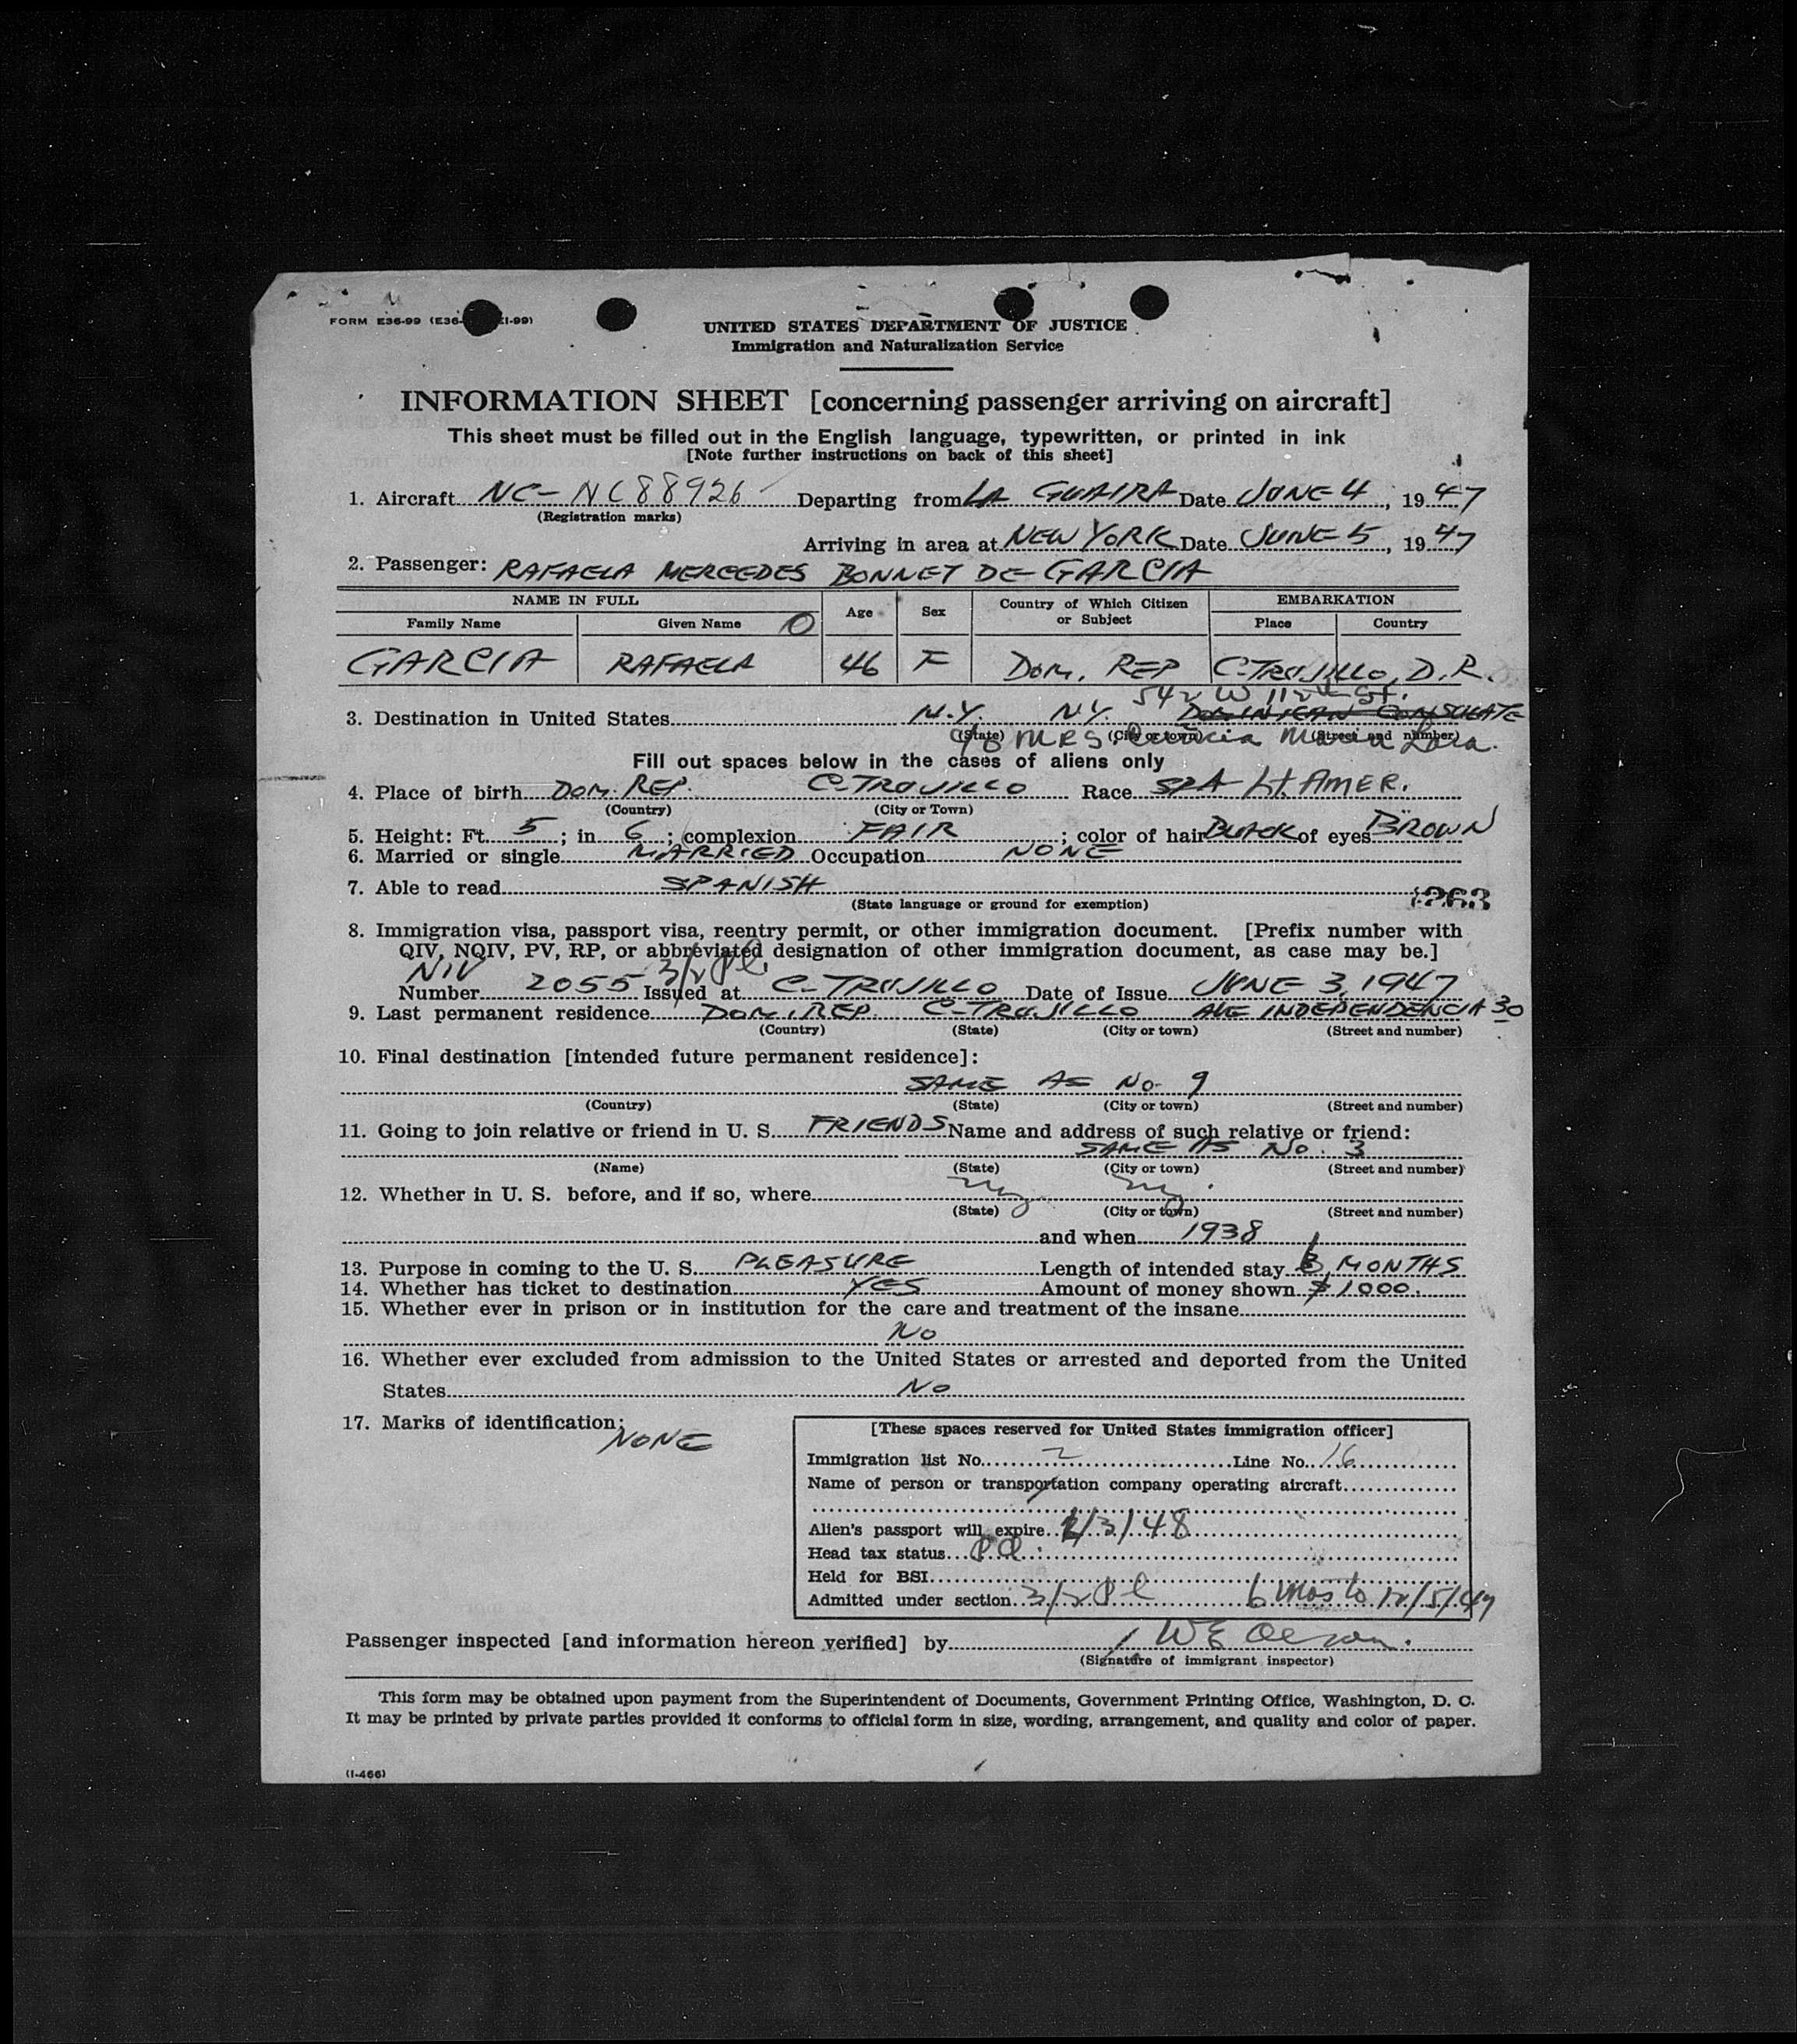 FORM E36-99 (E36- I-99)
UNITED STATES DEPARTMENT OF JUSTICE
Immigration and Naturalization Service
INFORMATION SHEET [concerning passenger arriving on aircraft]
This sheet must be filled out in the English language, typewritten, or printed in ink
[Note further instructions on back of this sheet]
1. Aircraft NC- NC88926 Departing from LA GUAIRA Date JUNE 4, 1947
(Registration marks)
Arriving in area at NEW YORK Date JUNE 5, 1947
2. Passenger: RAFAELA MERCEDES BONNET DE GARCIA
NAME IN FULL Age Sex Country of Which Citizen or Subject EMBARKATION
Family Name Given Name O Place Country
GARCIA RAFAELA 46 F DOM. REP C-TRUJILLO, D.R.
542 W 112th St.
3. Destination in United States N.Y. N.Y. DOMINICAN CONSULATE
(State) (City or town) (Street and number)
c/o MRS. Lara.
Fill out spaces below in the cases of aliens only
4. Place of birth DOM. REP. C-TRUJILLO Race SPA Lt. AMER.
(Country) (City or Town)
5. Height: Ft. 5; in 6; complexion FAIR; color of hair BLACK of eyes BROWN
6. Married or single MARRIED Occupation NONE
7. Able to read SPANISH
(State language or ground for exemption) 263
8. Immigration visa, passport visa, reentry permit, or other immigration document. [Prefix number with
QIV, NQIV, PV, RP, or abbreviated designation of other immigration document, as case may be.]
NIV 3/2
Number 2055 Issued at C-TRUJILLO Date of Issue JUNE 3, 1947
9. Last permanent residence DOM. REP. C-TRUJILLO AVE INDEPENDENCIA 30
(Country) (State) (City or town) (Street and number)
10. Final destination [intended future permanent residece]:
SAME AS No. 9
(Country) (State) (City or town) (Street and number)
11. Going to join relative or friend in U. S. FRIENDS Name and address of such relative or friend:
SAME AS No. 3
(Name) (State) (City or town) (Street and number)
12. Whether in U. S. before, and if so, where ny. ny.
(State) (City or town) (Street and number)
and when 1938
13. Purpose in coming to the U. S. PLEASURE Length of intended stay 6 MONTHS
14. Whether has ticket to destination YES Amount of money shown $1000.
15. Whether ever in prison or in institution for the care and treatment of the insane
No
16. Whether ever excluded from admission to the United States or arrested and deported from the United
States No
17. Marks of identification: NONE
[These spaces reserved for United States immigration officer]
Immigration list No. 2 Line No. 16
Name of person or transportation company operating aircraft
Alien's passport will expire /3/48
Head tax status
Held for BSI
Admitted under section 3/2 6 mos to 12/5/47
Passenger inspected [and information hereon verified] by W E
(Signature of immigrant inspector)
This form may be obtained upon payment from the Superintendent of Documents, Government Printing Office, Washington, D. C.
It may be printed by private parties provided it conforms to official form in size, wording, arrangement, and quality and color of paper.
(I-466)